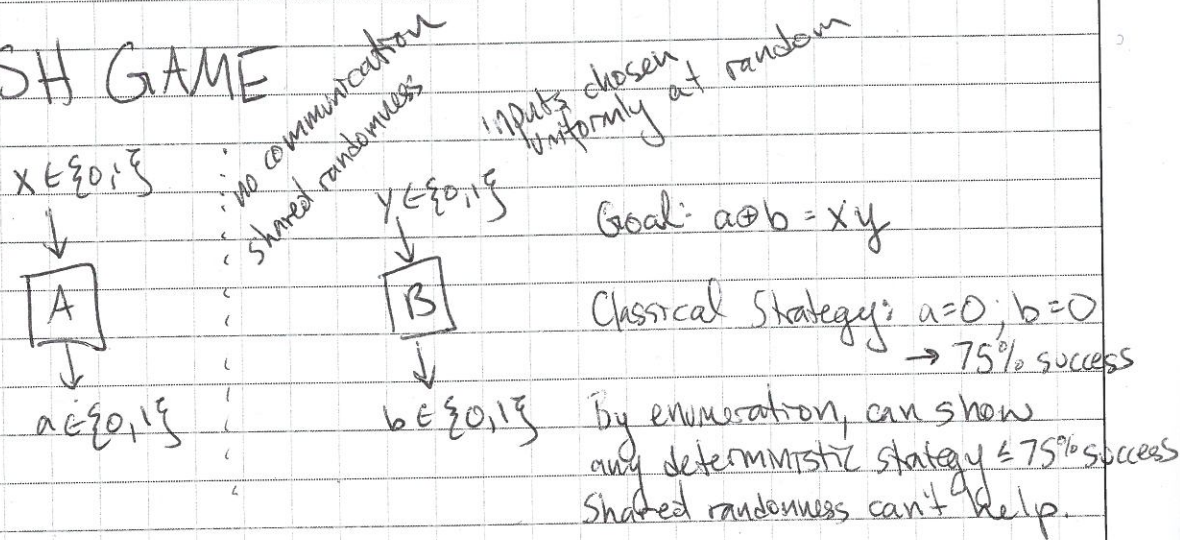 SH GAME
no communication
shared randomness
inputs chosen
uniformly at random
x ∈ {0,1}
y ∈ {0,1}
A
B
a ∈ {0,1}
b ∈ {0,1}
Goal: a⊕b = xy
Classical Strategy: a=0; b=0
→ 75% success
By enumeration, can show
any deterministic strategy ≤ 75% success
Shared randomness can't help.